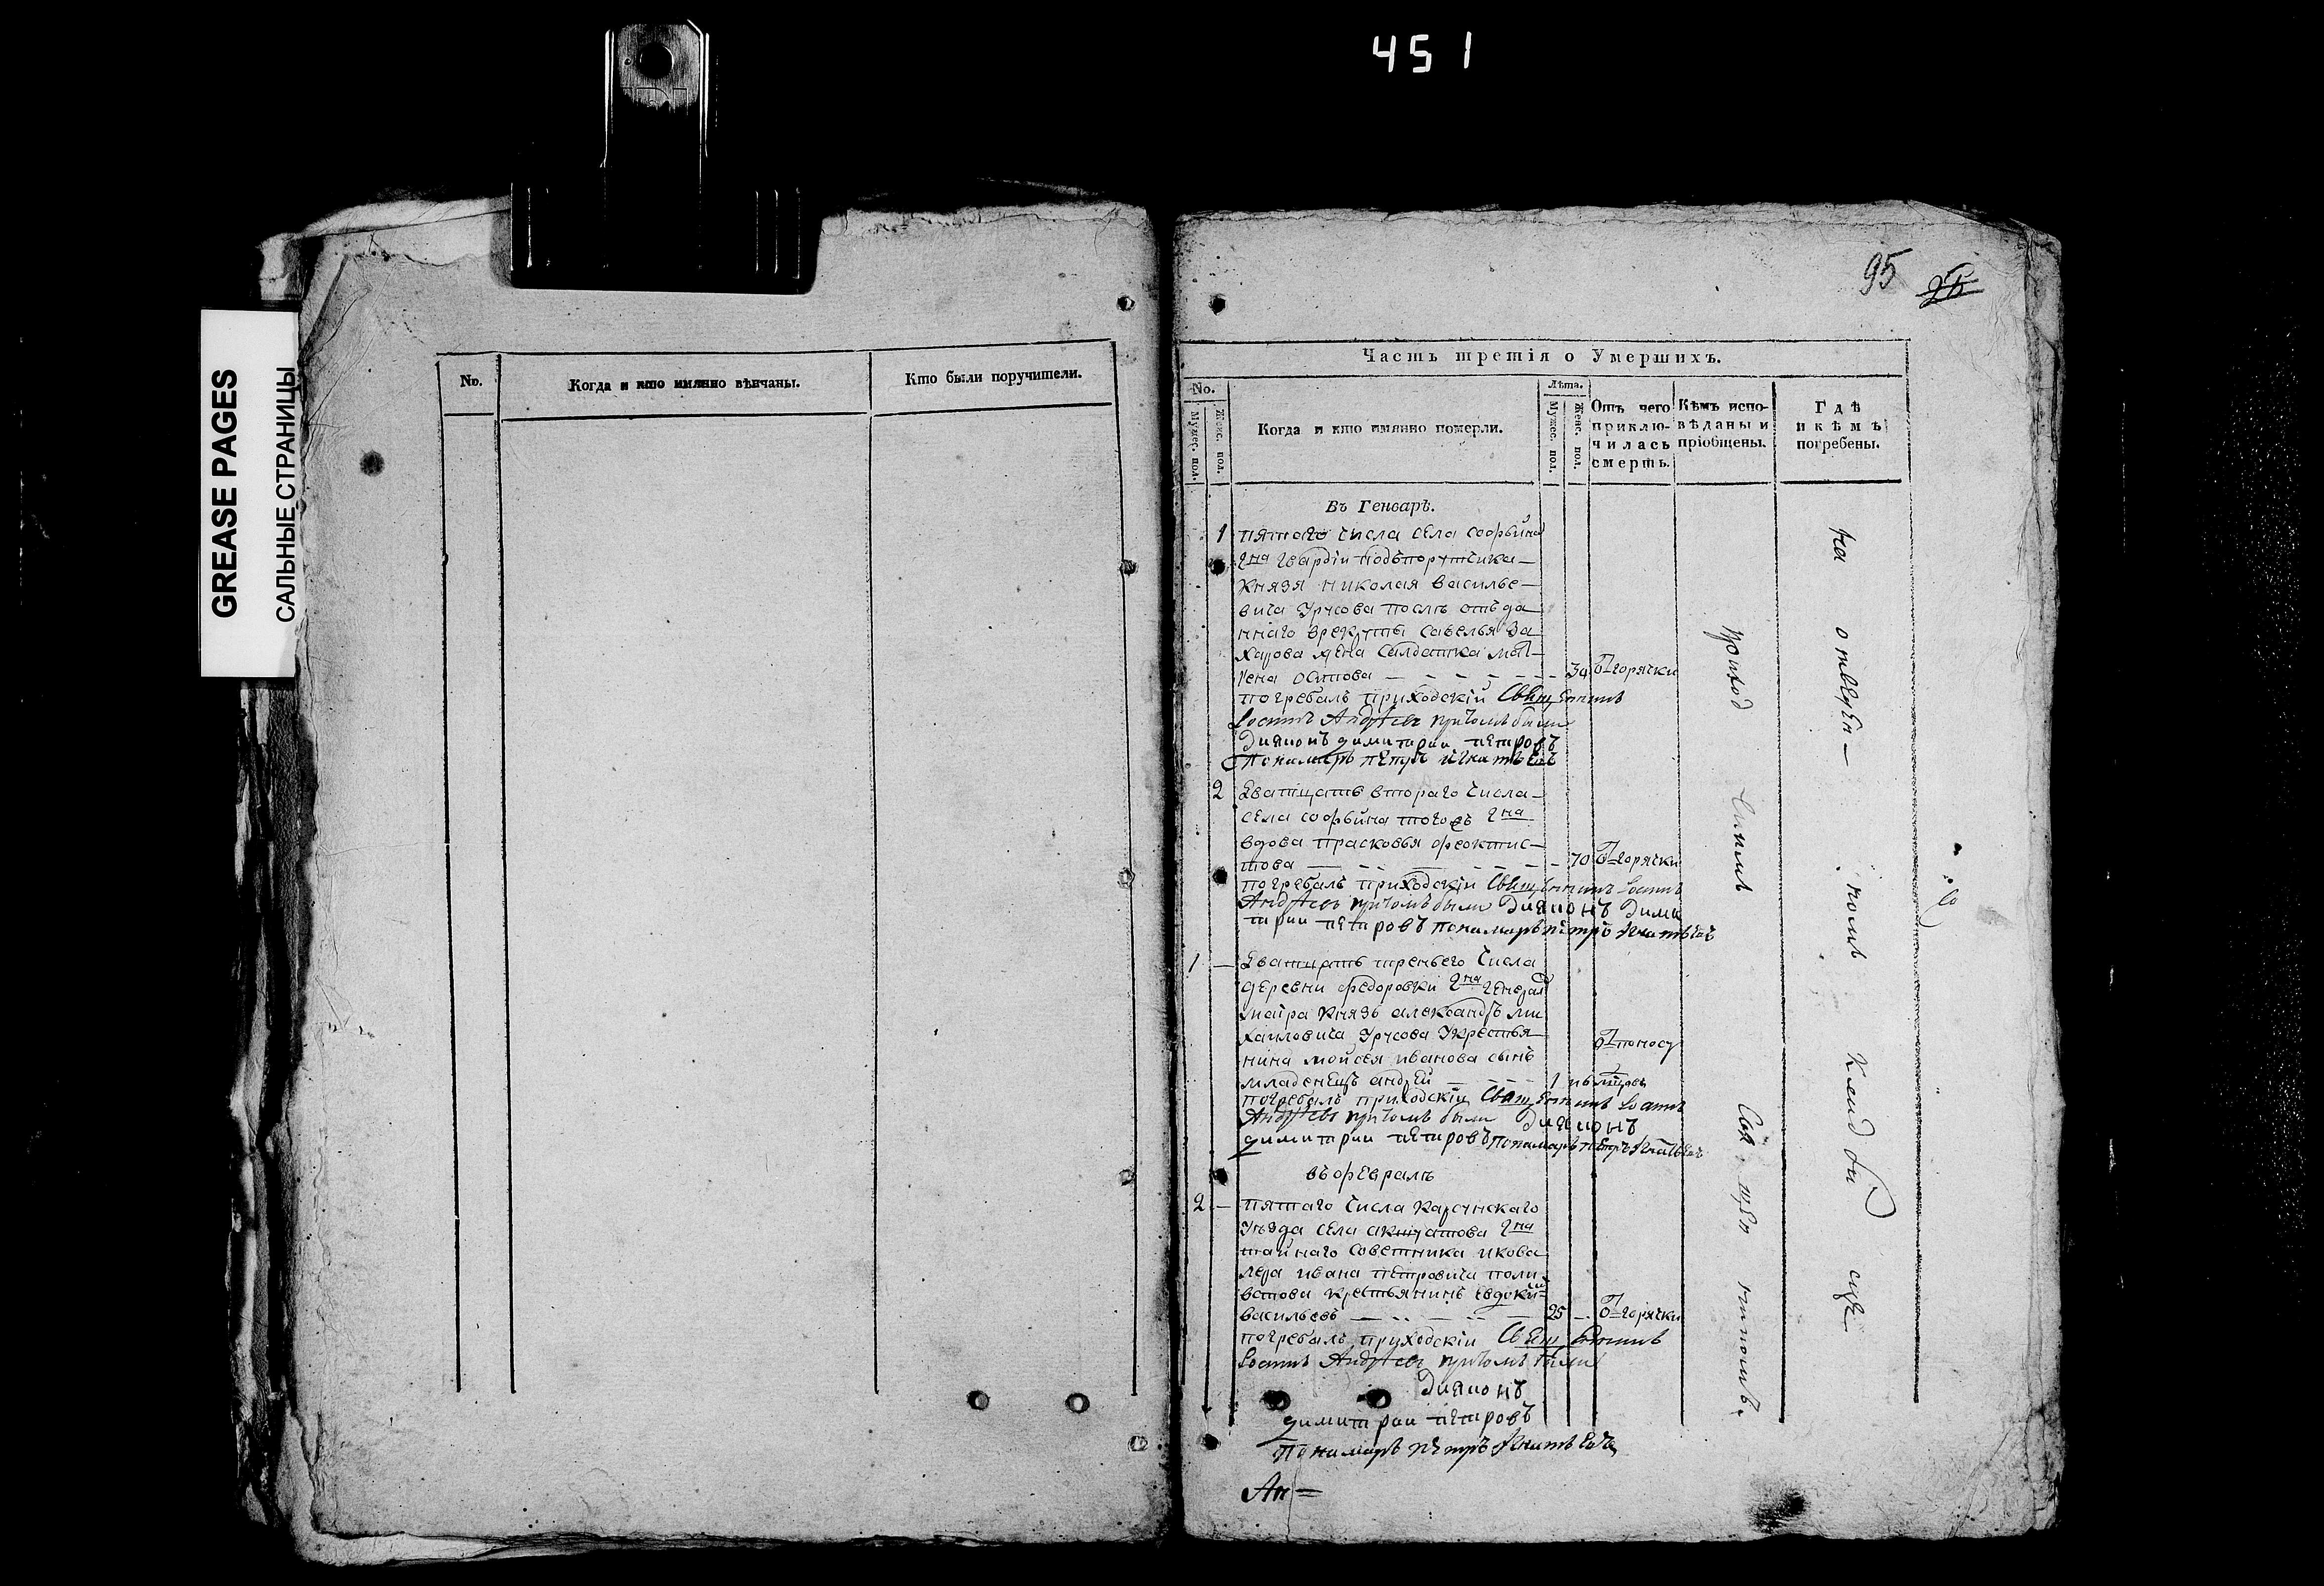 451
GREASE PAGES
САЛЬНЫЕ СТРАНИЦЫ
No.
Когда и кто имянно вѣнчаны.
Кто были поручители.
95
Часть третія о Умершихъ.
No.
Мужес. пол.
Женс. пол.
Когда и кто имянно померли.
Лѣта.
Мужес. пол.
Женс. пол.
Отъ чего приклю-
чилась
смерть.
Кѣмъ испо-
вѣданы и
пріобщены.
Гдѣ
и кѣмъ
погребены.
Въ Генварѣ.
1 пятаго числа села софьина
гна гвардіи подпорутчика
Князя николая василье-
вича Урусова послѣ отъда
ннаго врекруты савелья За
харова жена салдатка мат-
рена осипова 30 от горячки
погребалъ приходскій Священникъ
Іоаннъ Андреевъ притомъ были
Дияконъ димитрии петровъ
Пономарь петръ игнатьевъ
2 Дватцать втораго числа
села софьина тогожъ гна
вдова прасковья феоктис-
това 70 от горячки
погребалъ приходскій Священникъ Іоаннъ
Андреевъ притомъ были Дияконъ Дими
трии петровъ пономарь петръ Игнатьевъ
1 Дватцать третьего числа
деревни федоровки гна генерал
маіра Князь александръ ми
хайловича Урусова Укрестья
нина мойсея иванова сынъ от поносу
младенецъ андрей 1 и 6 мцовъ
погребалъ приходскіи Священникъ Іоаннъ
Андреевъ притомъ были Дияконъ
димитрии петровъ пономарь петръ Игнатьевъ
въ февралѣ
2 пятаго числа Карсунскаго
Уѣзда села акшуатова гна
тайнаго советника икова
лера ивана петровича поли
ватова крестьянинъ евдокимъ
васильевъ 25 от горячки
погребалъ приходскіи Священникъ
Іоаннъ Андреевъ притомъ были
Дияконъ
димитрии петровъ
Пономарь петръ Игнатьевъ
Ан=
приход
скимъ
Свя
щен
никомъ.
на
отведен-
номъ
кладби
щѣ